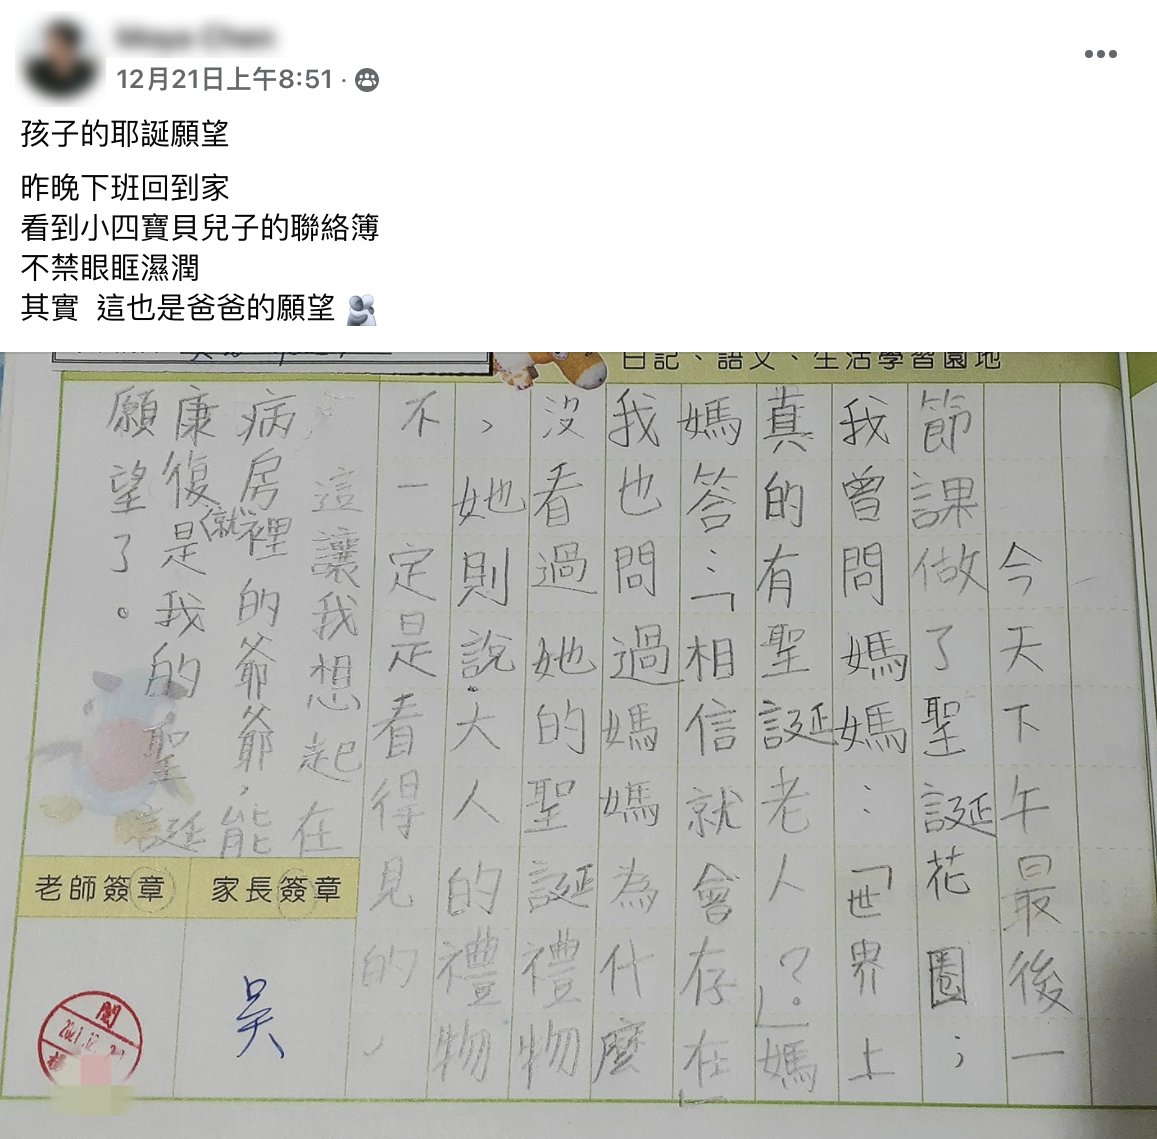 12月21日上午8:51
孩子的耶誕願望
昨晚下班回到家
看到小四寶貝兒子的聯絡簿
不禁眼眶濕潤
其實 這也是爸爸的願望
日記、語文、生活學習園地
今天下午最後一
節課做了聖誕花圈；
我曾問媽媽：「世界上
真的有聖誕老人？」媽
媽答：「相信就會存在」
我也問過媽媽為什麼
沒看過她的聖誕禮物
，她則說：大人的禮物
不一定是看得見的，
這讓我想起在
病房裡的爺爺，能
康復就是我的聖誕
願望了。
老師簽章
家長簽章
吳
閱